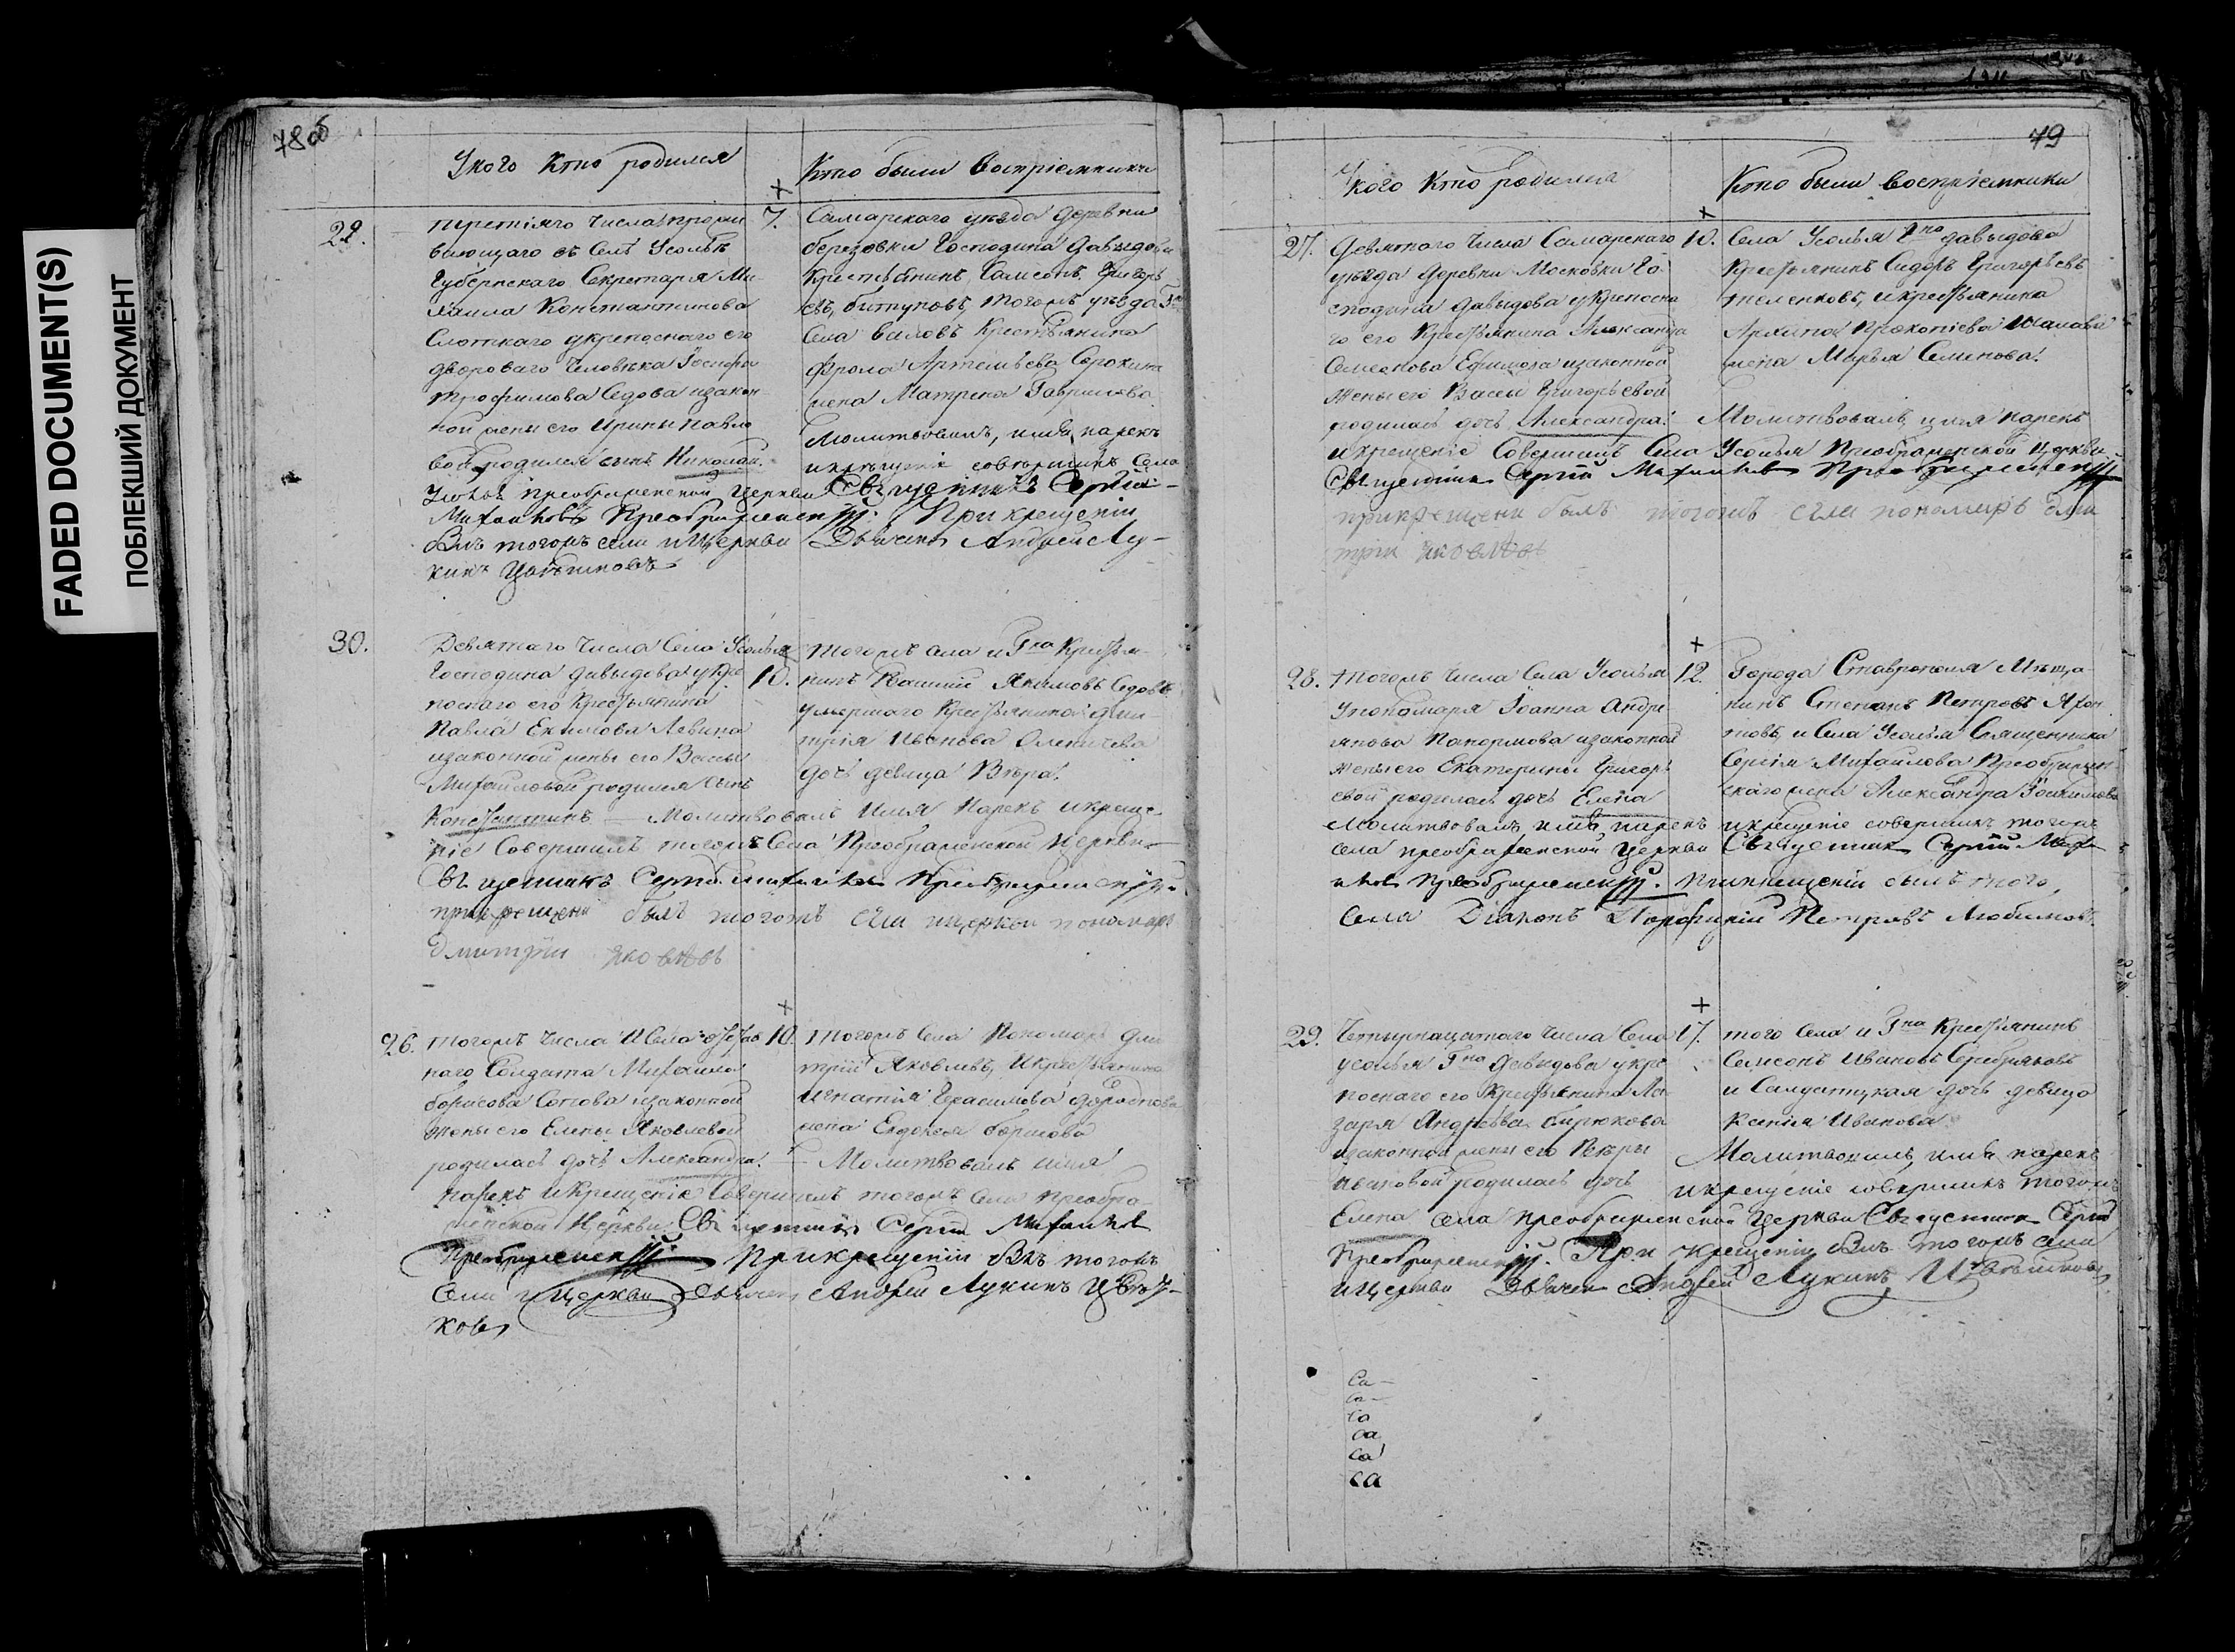 FADED DOCUMENT(S)
ПОБЛЕКШИЙ ДОКУМЕНТ
78об
Укого Кто родился
Кто были Воспріемники
29.
третіяго числа прожи
вающаго въ Селѣ Усольѣ
Губернскаго Секретаря Ми
хаила Константинова
укрепоснаго его
двороваго человѣка Іосифа
Трофимова Седова изакон
ной жены его Ирины Павло
вой родился сынъ Николай.
7.
Самарскаго уѣзда деревни
березовки Господина Давыдова
Крестьянинъ Самсонъ Григорь
евъ, битуновъ, тогожъ уѣзда Гна
Села Крестьянина
Фрола Артемьева Сорокина
жена Матрена Гаврилова
Молитвовалъ, имя нарекъ
икрещеніе совершилъ Села
Усолья преображенской Церкви Священникъ Сергій
Михайловъ Преображенскій. При крещеніи
былъ тогожъ села ицеркви Дьячекъ Андрей Лу-
кинъ
30.
Девятаго числа Села Усолья
Господина Давыдова укре
поснаго его Крестьянина
Павла Екимова Левина
изаконной жены его Вассы
Михайловой родился сынъ
10.
тогожъ села и Гна Крестья-
нинъ Якимовъ Седовъ
умершаго Крестьянина Дми
трія Иванова
дочь девица Вѣра.
Константинъ — Молитвовалъ Имя Нарекъ икреще-
ніе Совершилъ тогожъ Села Преображенской Церкви
Священникъ Сергій Михайловъ Преображенскій
прикрещени былъ тогожъ села ицеркви пономарь
Дмитрій Яковлевъ
26.
Тогожъ числа ИСела
наго Солдата Михаила
борисова изаконной
жены его Елены Яковлевой
родилась дочь Александра.
10.
Тогожъ Села Пономарь Дми
трій Яковлевъ, Икрестьянина
игнатія Герасимова
жена Евдокея борисова
— Молитвовалъ имя
нарекъ икрещеніе Совершилъ тогожъ села преобра
женской Церкви Священникъ Сергій Михайловъ
Преображенскій. Прикрещеніи былъ тогожъ
Села ицеркви Дьячекъ Андрей Лукинъ
79
Укого Кто родился
Кто были воспріемники
27.
Девятаго Числа Самарскаго
уѣзда деревни Московки Го
сподина Давыдова укрепосна
го его Крестьянина Александра
Семенова Ефимова изаконной
жены его Вассы Григорьевой
родилась дочь Александра.
10.
Села Усолья Гна давыдова
Крестьянинъ Сидоръ Григорьевъ
теленковъ, икрестьянина
Архипа Прокопіева
жена Марья Семенова.
Молитвовалъ, имя нарекъ
икрещеніе Совершилъ Села Усолья Преображенской Церкви
Священникъ Сергій Михайловъ Преображенскій
прикрещени былъ тогожъ села пономарь дми
трій Яковлевъ
28.
тогожъ числа Села Усолья
упономаря Іоанна Андре
янова Панормова изаконной
жены его Екатерины Григорь
евой родилась дочь Елена
12.
Города Ставрополя Мѣща-
нинъ Степанъ Петровъ
и Села Усолья Священника
Сергія Михайлова Преображен
скаго жена Александра
Молитвовалъ, имя нарекъ икрещеніе совершилъ тогожъ
Села преображенской церкви Священникъ Сергій Миха
йловъ Преображенскій. Прикрещеніи былъ того
Села Діаконъ Порфирій Петровъ Любимовъ.
29.
Четырнацатаго числа Села
усолья Гна Давыдова укре
поснаго его Крестьянина Ла
заря Андреева бирюкова
изаконной жены его Вѣры
ивановой родилась дочь
Елена
17.
того Села и Гна Крестьянинъ
Самсонъ Ивановъ Серебряковъ
и Салдатская дочь девица
Ксенія Иванова
Молитвовалъ, имя нарекъ
икрещеніе совершилъ тогожъ
села преображенской Церкви Священникъ Сергій
Преображенскій. При крещеніи былъ тогожъ села
ицеркви Дьячекъ Андрей Лукинъ
Са-
Са-
Са
Са
Са
Са